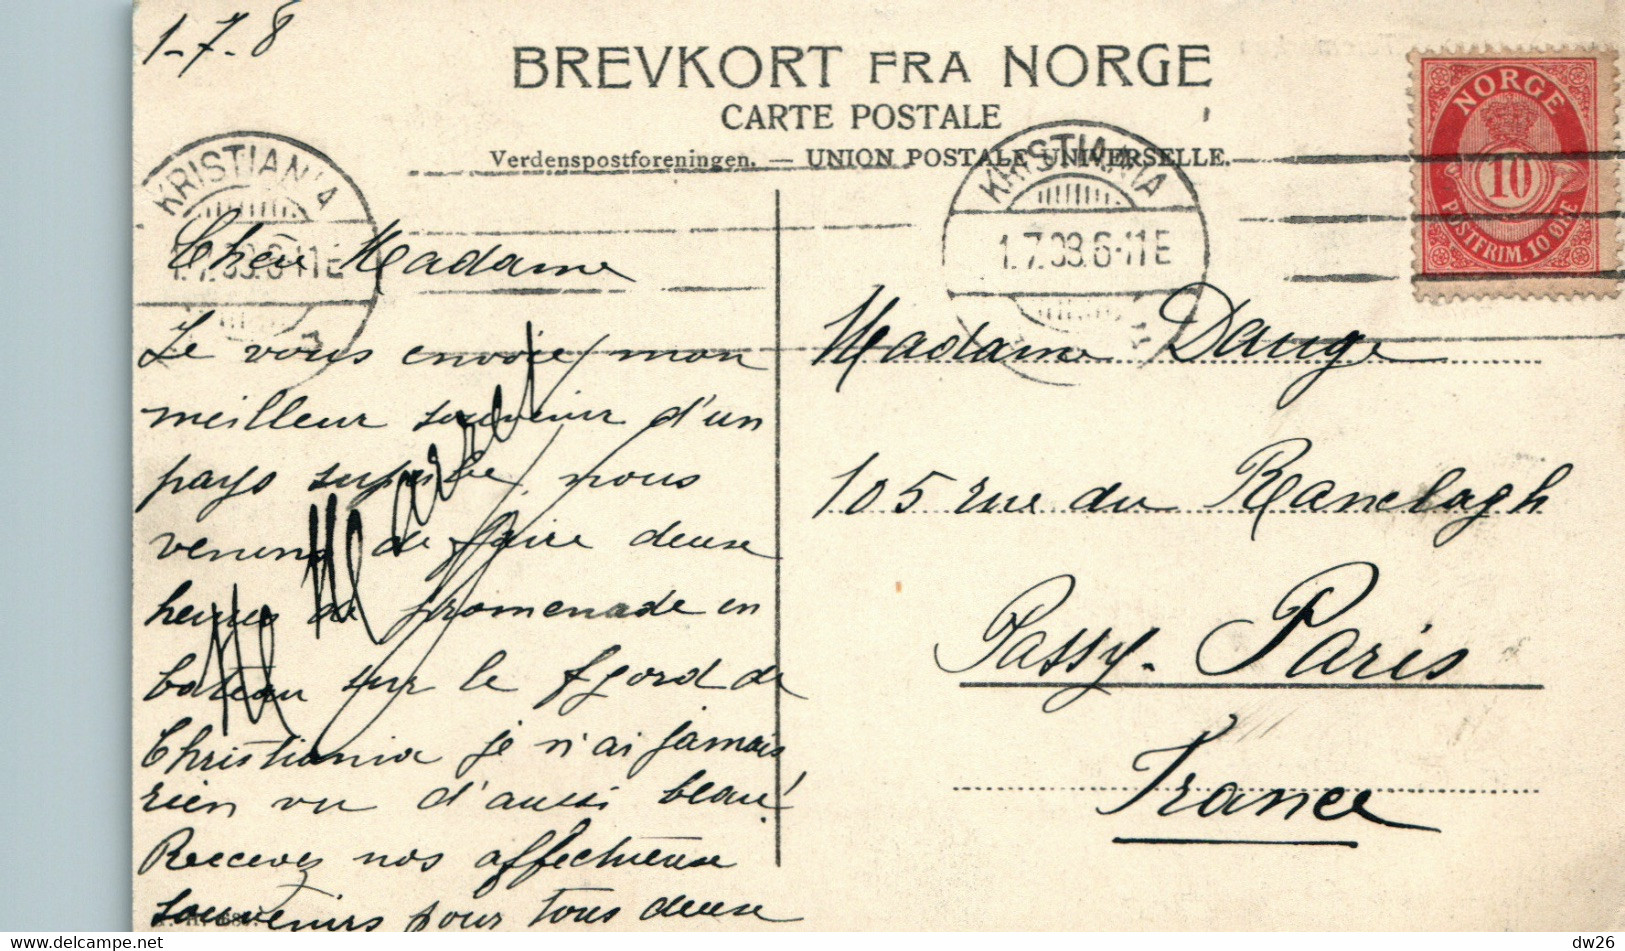 1-7-8
BREVKORT FRA NORGE
CARTE POSTALE
Verdenspostforeningen. — UNION POSTALE UNIVERSELLE.
KRISTIANIA
1.7.08.6-11E
KRISTIANIA
1.7.08.6-11E
NORGE
10
POSTFRIM. 10 ØRE
Chère Madame
Je vous envoie mon
meilleur souvenir d'un
pays superbe, nous
venons de faire deux
heures de promenade en
bateau sur le fjord de
Christiania je n'ai jamais
rien vu d'aussi beau!
Recevez nos affectueux
souvenirs pour tous deux
Madame Dauge
105 rue du Ranelagh
Passy-Paris
France
dw26